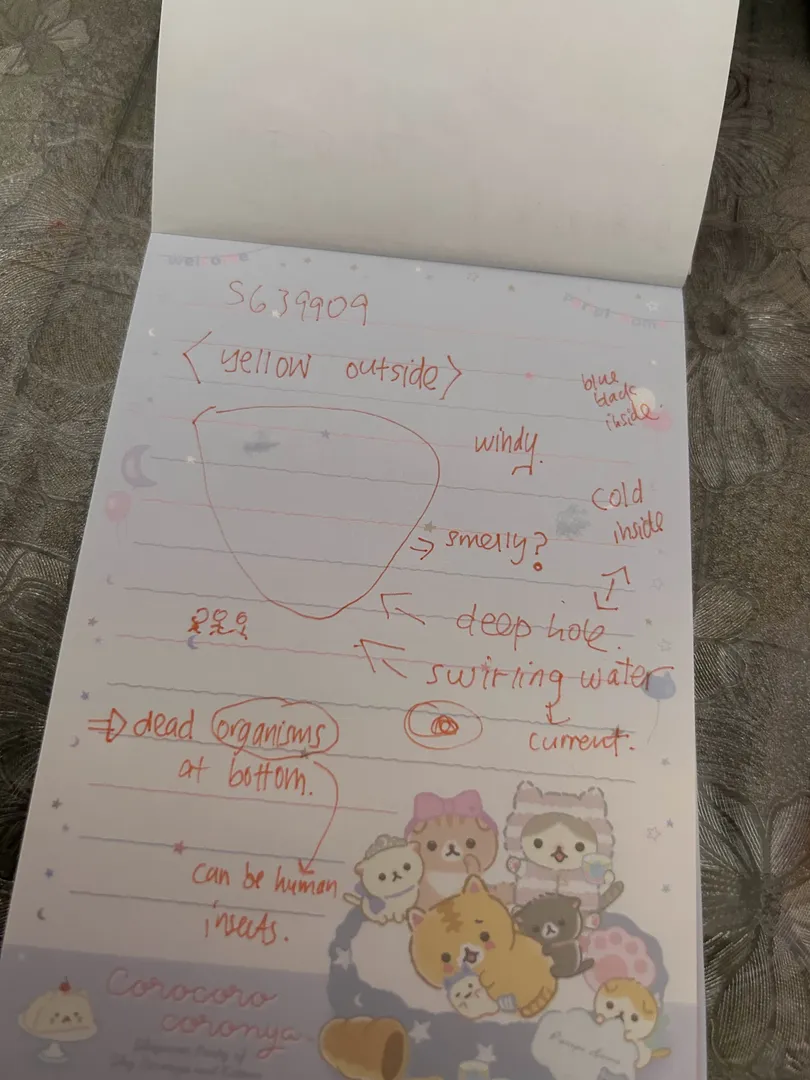 welcome
S639909
< yellow outside >
blue
black
inside.
windy.
cold
inside
smelly?
deep hole.
swirling water
current.
dead organisms
at bottom.
can be human
insects.
Corocoro
coronya